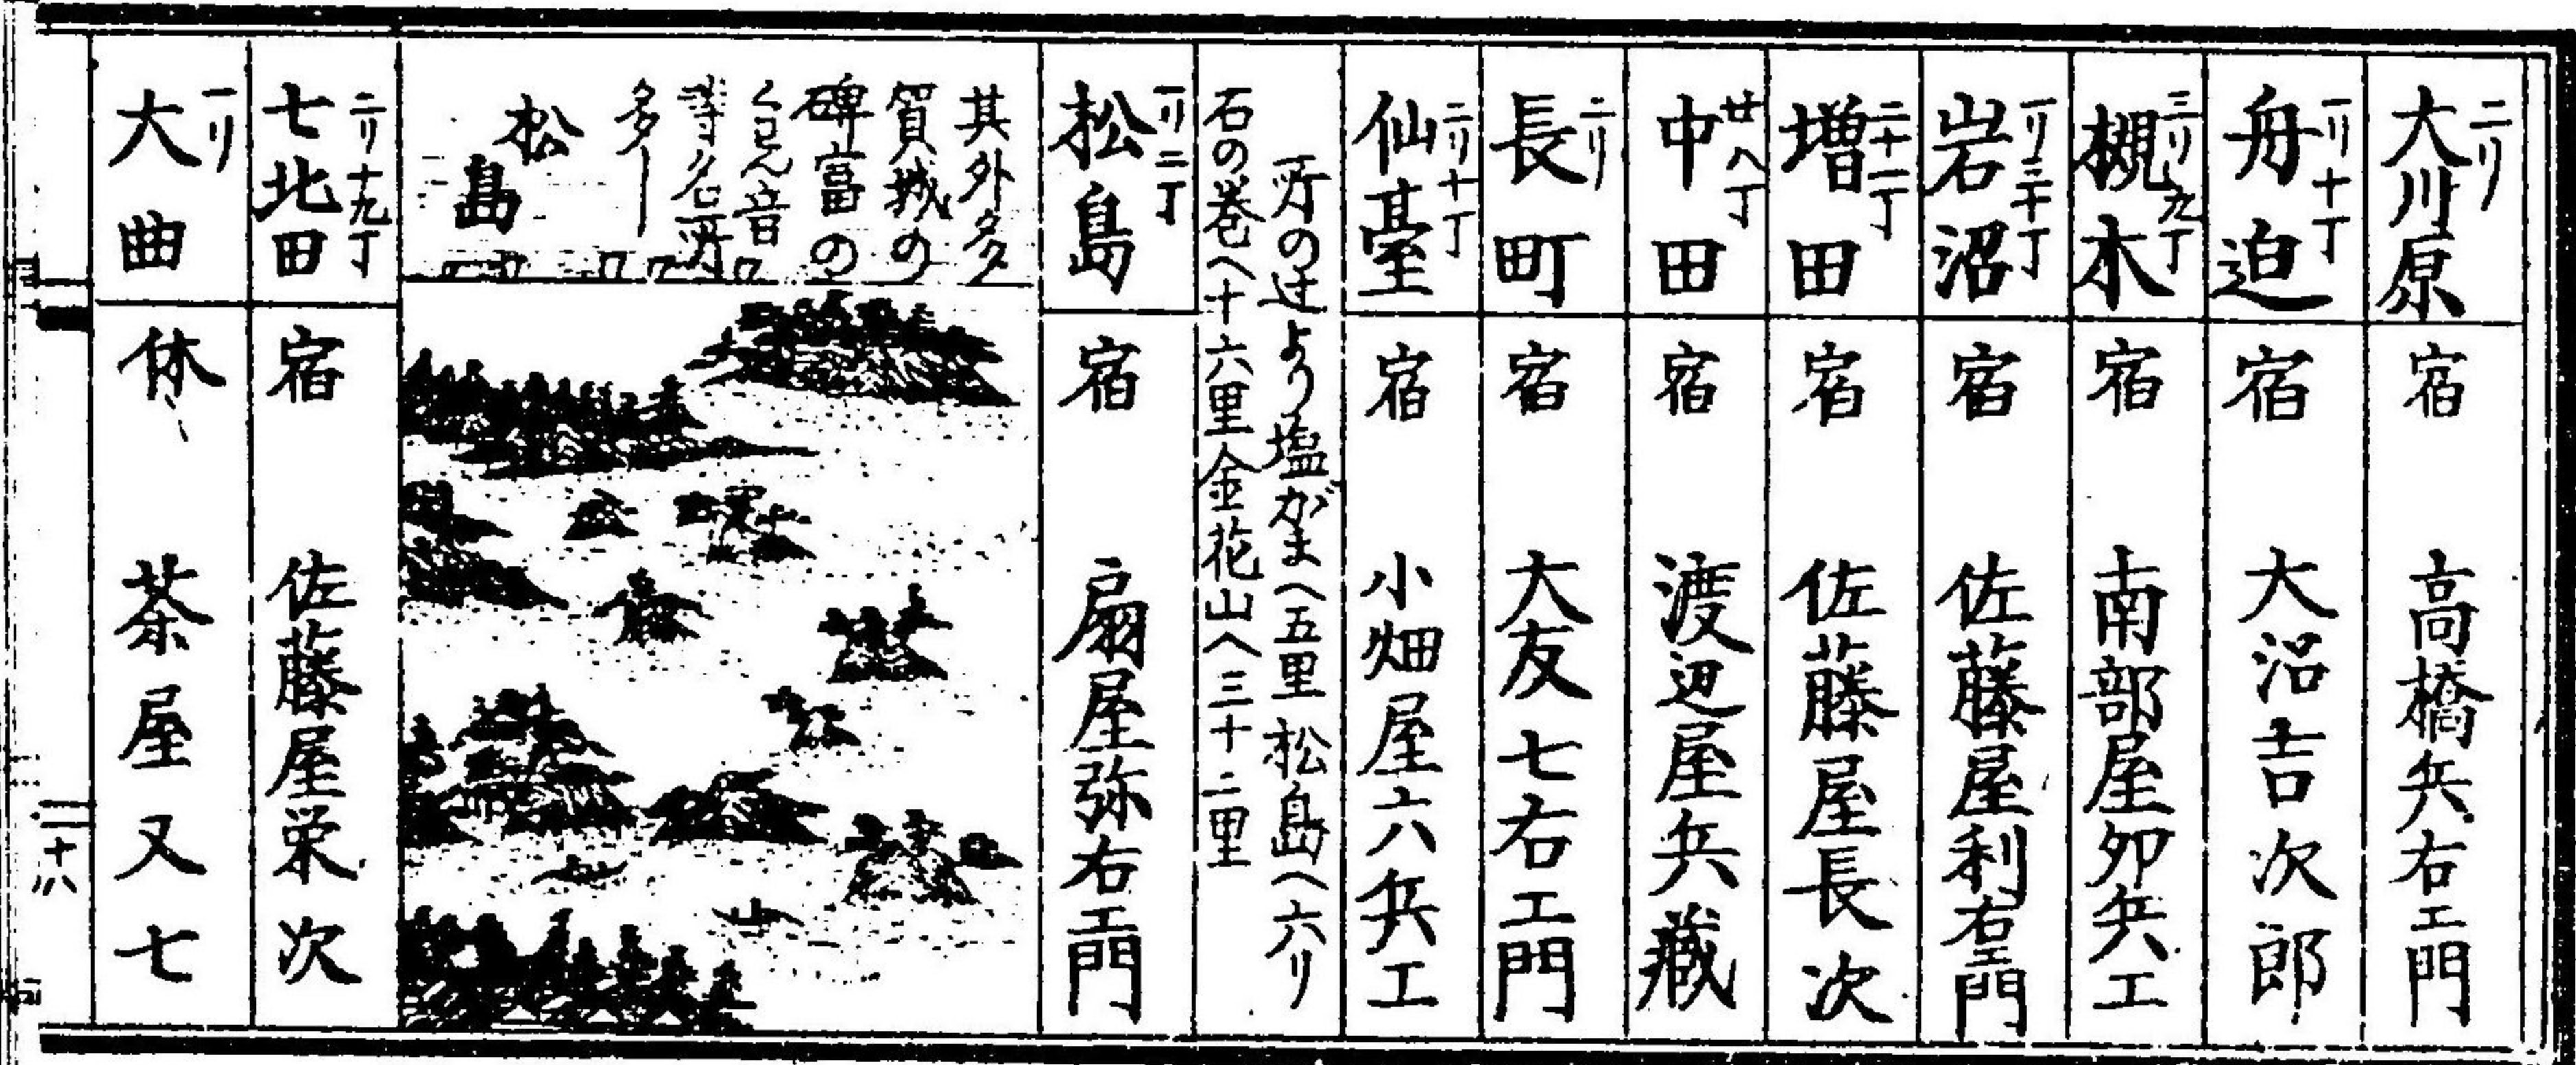 二リ
大川原 宿 高橋兵右エ門
一リ十丁
舟迫 宿 大沼吉次郎
三リ九丁
槻木 宿 南部屋卯兵エ
岩沼 宿 佐藤屋利右エ門
二十一丁
増田 宿 佐藤屋長次
廿八丁
中田 宿 渡辺屋兵蔵
二リ
長町 宿 大友七右エ門
二リ十丁
仙臺 宿 小畑屋六兵エ
所の辻より塩がまへ五里松島へ六リ
石の巻へ十六里金花山へ三十二里
一リ二丁
松島 宿 扇屋弥右エ門
其外多
賀城の
碑富の
くわん音
等名所
多し
松島
二リ十九丁
七北田 宿 佐藤屋栄次
一リ
大曲 休 茶屋又七
十八